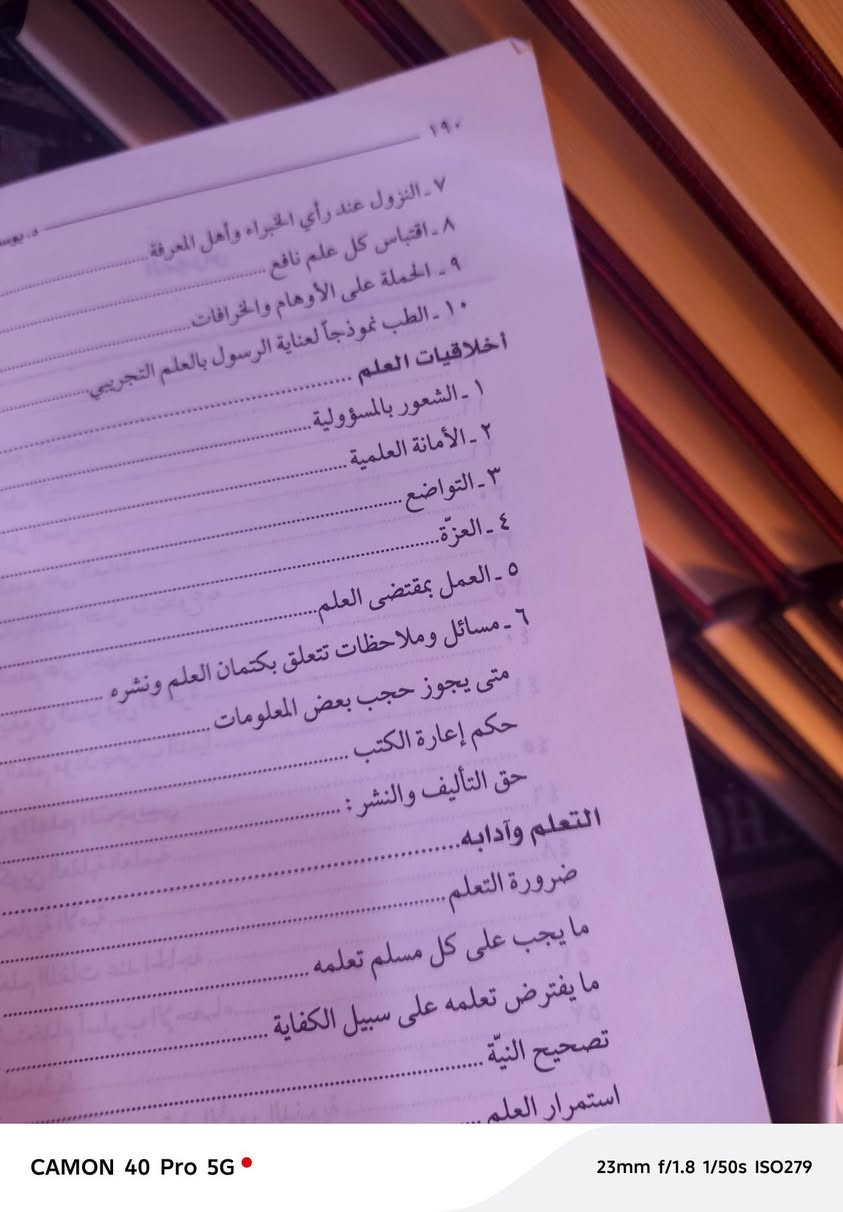 ١٩٠
د. يوسـ
٧ ـ النزول عند رأي الخبراء وأهل المعرفة
٨ ـ اقتباس كل علم نافع
٩ ـ الحملة على الأوهام والخرافات
١٠ ـ الطب نموذجاً لعناية الرسول بالعلم التجريبي
أخلاقيات العلم
١ ـ الشعور بالمسؤولية
٢ ـ الأمانة العلمية
٣ ـ التواضع
٤ ـ العزّة
٥ ـ العمل بمقتضى العلم
٦ ـ مسائل وملاحظات تتعلق بكتمان العلم ونشره
متى يجوز حجب بعض المعلومات
حكم إعارة الكتب
حق التأليف والنشر :
التعلم وآدابه
ضرورة التعلم
ما يجب على كل مسلم تعلمه
ما يفترض تعلمه على سبيل الكفاية
تصحيح النيّة
استمرار العلم
CAMON 40 Pro 5G
23mm f/1.8 1/50s ISO279